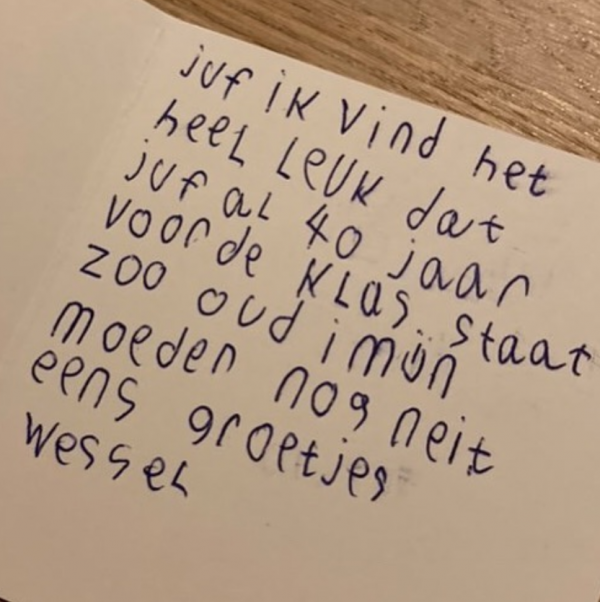 juf ik vind het
heel leuk dat
juf al 40 jaar
voor de klas staat
zoo oud i mijn
moeder nog neit
eens groetjes
wessel